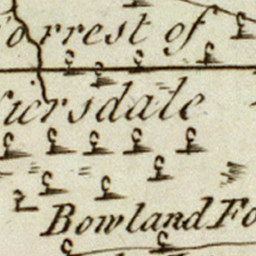 orrest of
iersdale
Bowland Fo